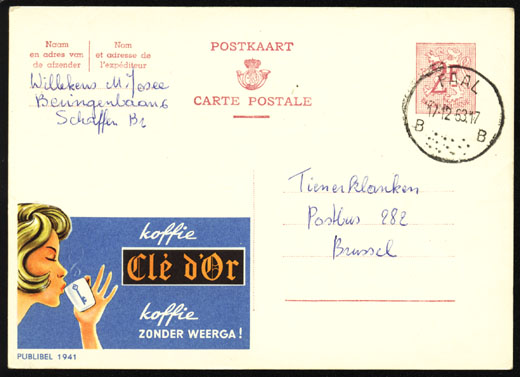 Naam
en adres van
de afzender
Nom
et adresse de
l'expéditeur
POSTKAART
CARTE POSTALE
2F
17-12-63 17
B B
Willekens M. Josee
Schaffen Br
Tienerklanken
Postbus 282
Brussel
koffie
Clé d'Or
koffie
ZONDER WEERGA!
PUBLIBEL 1941